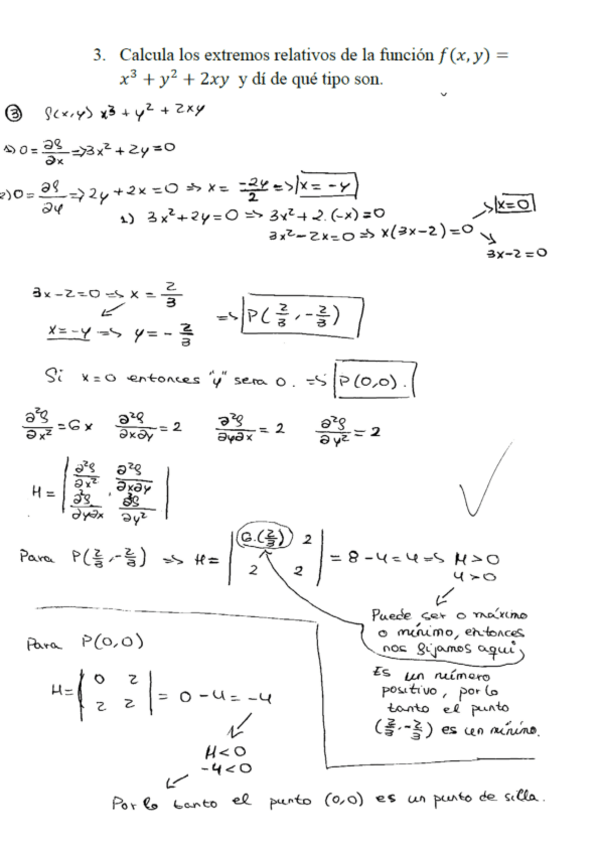 3. Calcula los extremos relativos de la función f(x, y) =
x³ + y² + 2xy y dí de qué tipo son.
③ f(x,y) x³ + y² + 2xy
1) 0 = ∂f/∂x => 3x² + 2y = 0
2) 0 = ∂f/∂y => 2y + 2x = 0 => x = -2y/2 => x = -y
1) 3x² + 2y = 0 => 3x² + 2·(-x) = 0
3x² - 2x = 0 => x(3x-2) = 0
x = 0
3x-2 = 0
3x-2 = 0 => x = 2/3
x = -y => y = -2/3
=> P(2/3, -2/3)
Si x = 0 entonces "y" sera 0. => P(0,0).
∂²f/∂x² = 6x ∂²f/∂x∂y = 2 ∂²f/∂y∂x = 2 ∂²f/∂y² = 2
H = | ∂²f/∂x² · ∂²f/∂x∂y |
| ∂²f/∂y∂x ∂²f/∂y² |
Para P(2/3, -2/3) => H = | 6·(2/3) 2 | = 8 - 4 = 4 => H > 0
| 2 2 | 4 > 0
Puede ser o máximo
o mínimo, entonces
nos fijamos aquí,
Es un número
positivo, por lo
tanto el punto
(2/3, -2/3) es un mínimo.
Para P(0,0)
H = | 0 2 | = 0 - 4 = -4
| 2 2 |
H < 0
-4 < 0
Por lo tanto el punto (0,0) es un punto de silla.